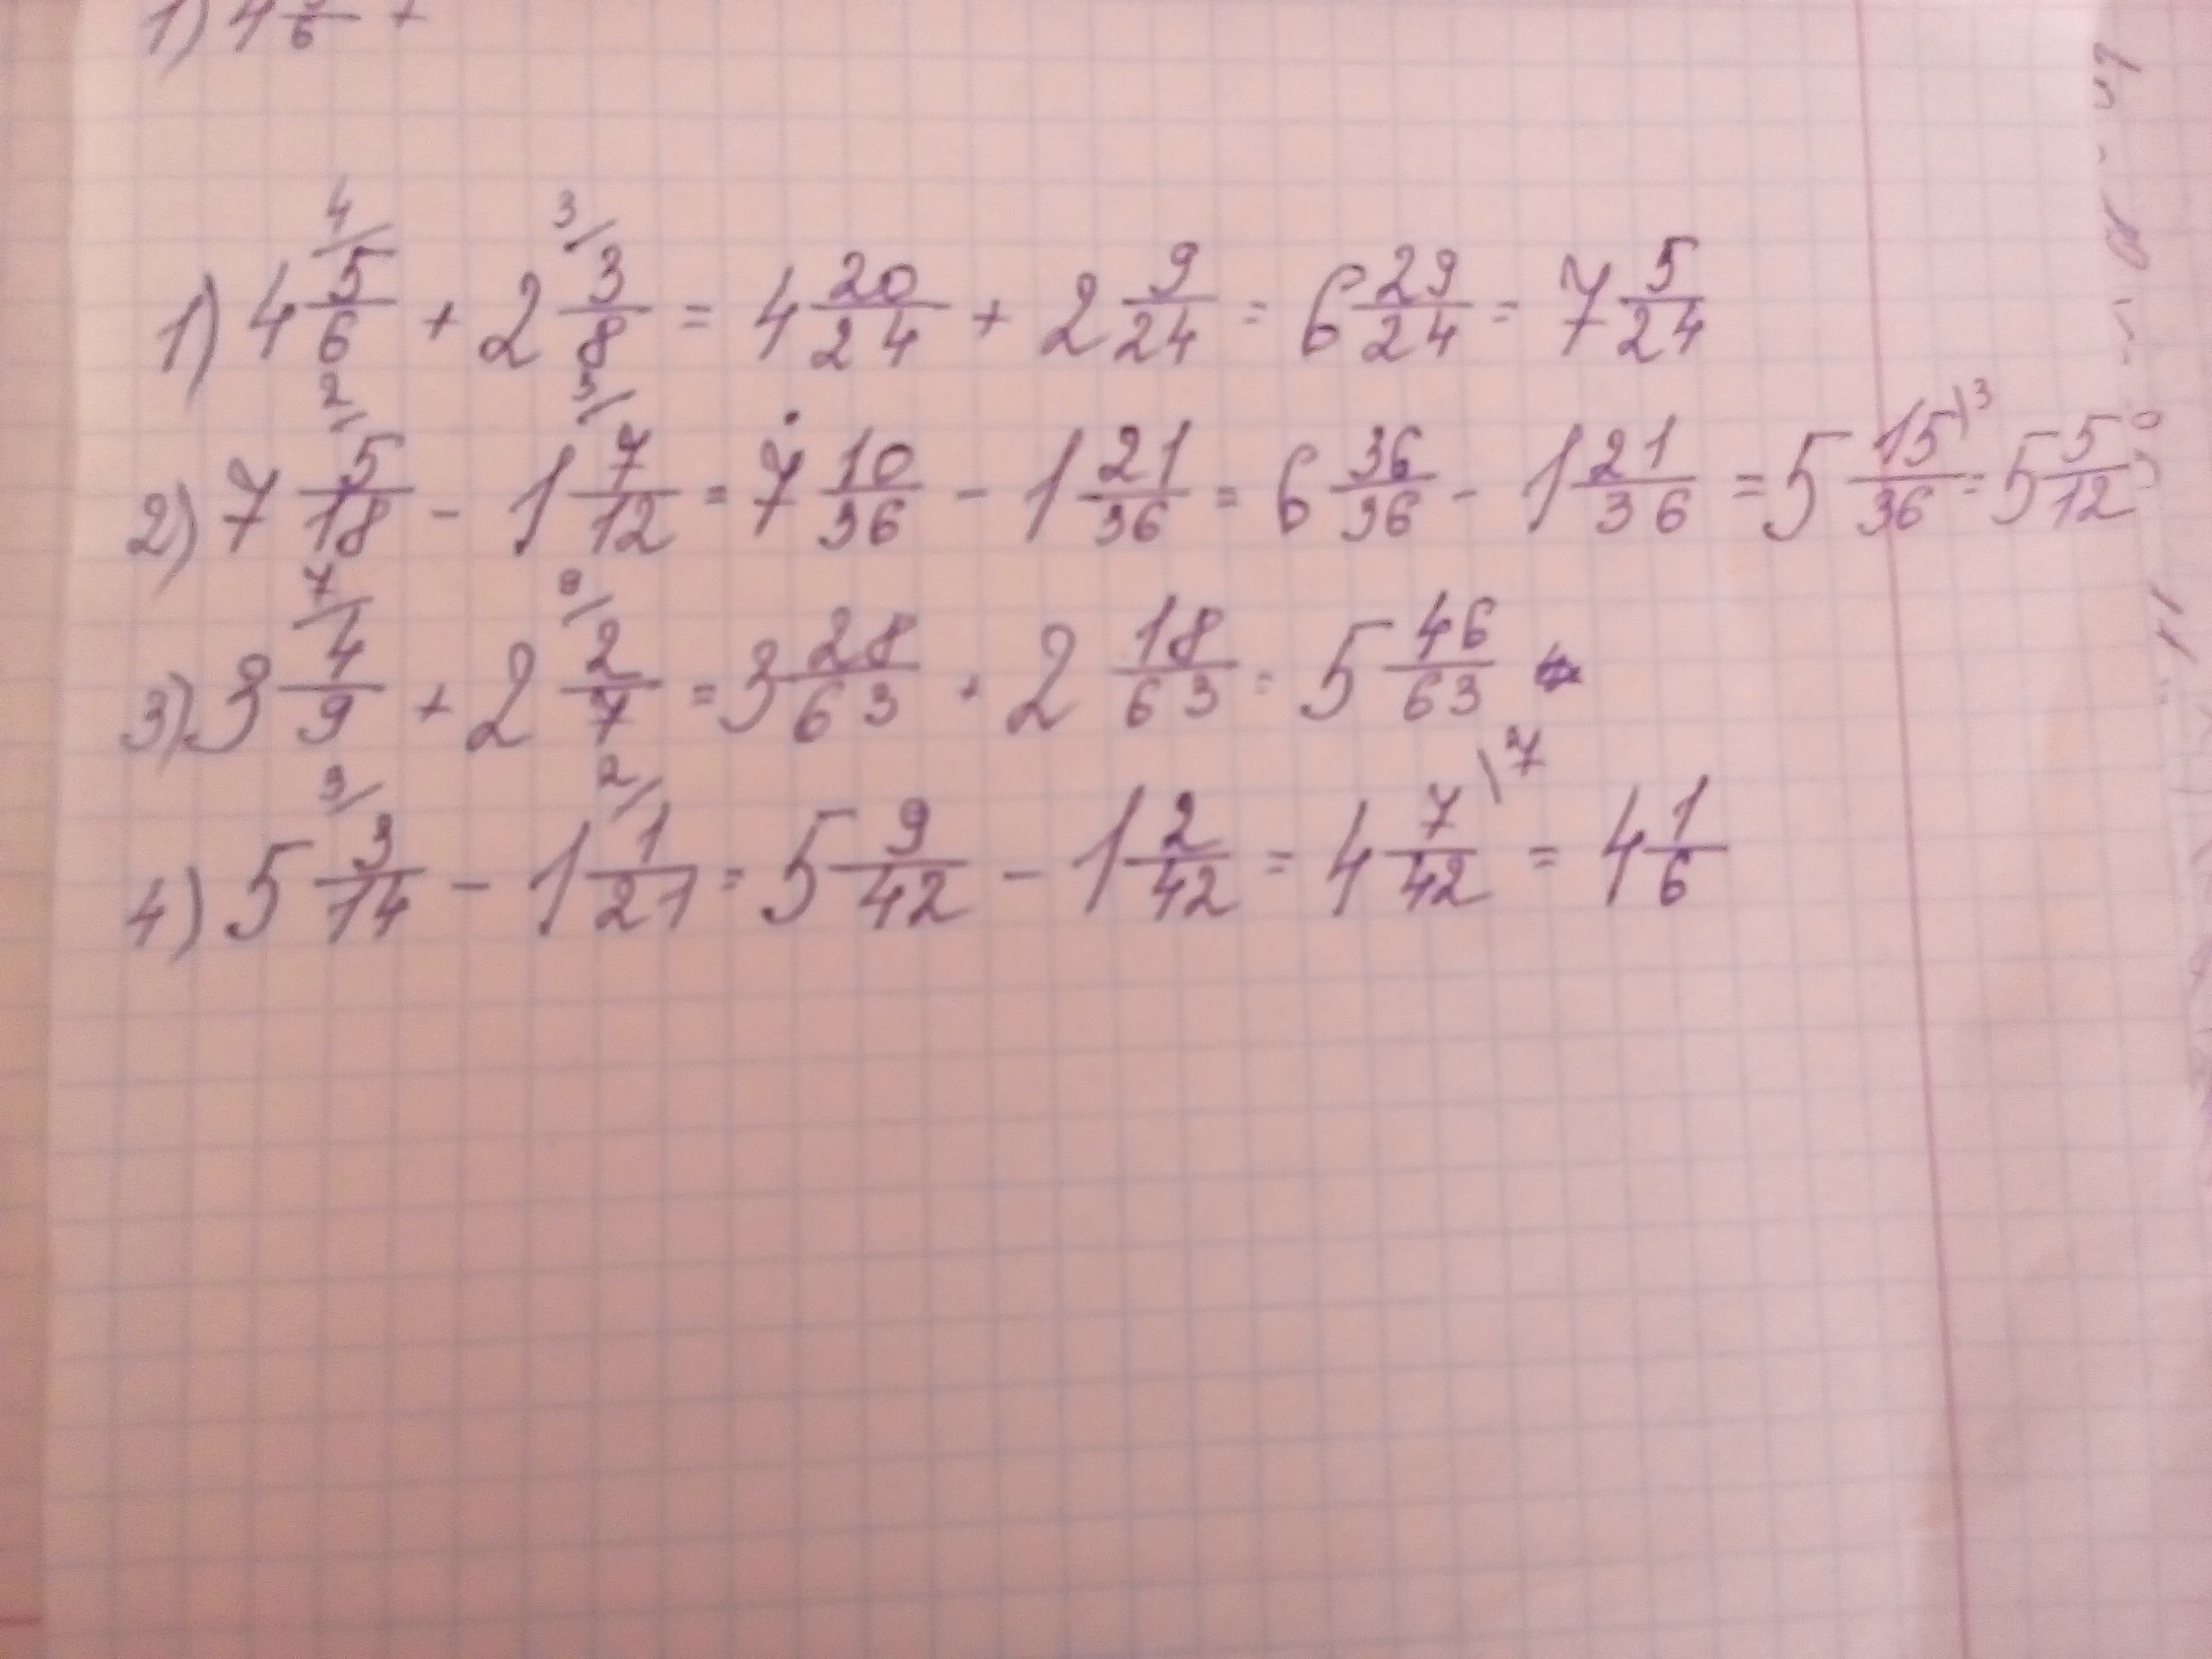 1) 4 5/6 +
1) 4 5/6 + 2 3/8 = 4 20/24 + 2 9/24 = 6 29/24 = 7 5/24
2) 7 5/18 - 1 7/12 = 7 10/36 - 1 21/36 = 6 36/36 - 1 21/36 = 5 15/36 = 5 5/12
3) 3 4/9 + 2 2/7 = 3 28/63 + 2 18/63 = 5 46/63
4) 5 3/14 - 1 1/21 = 5 9/42 - 1 2/42 = 4 7/42 = 4 1/6